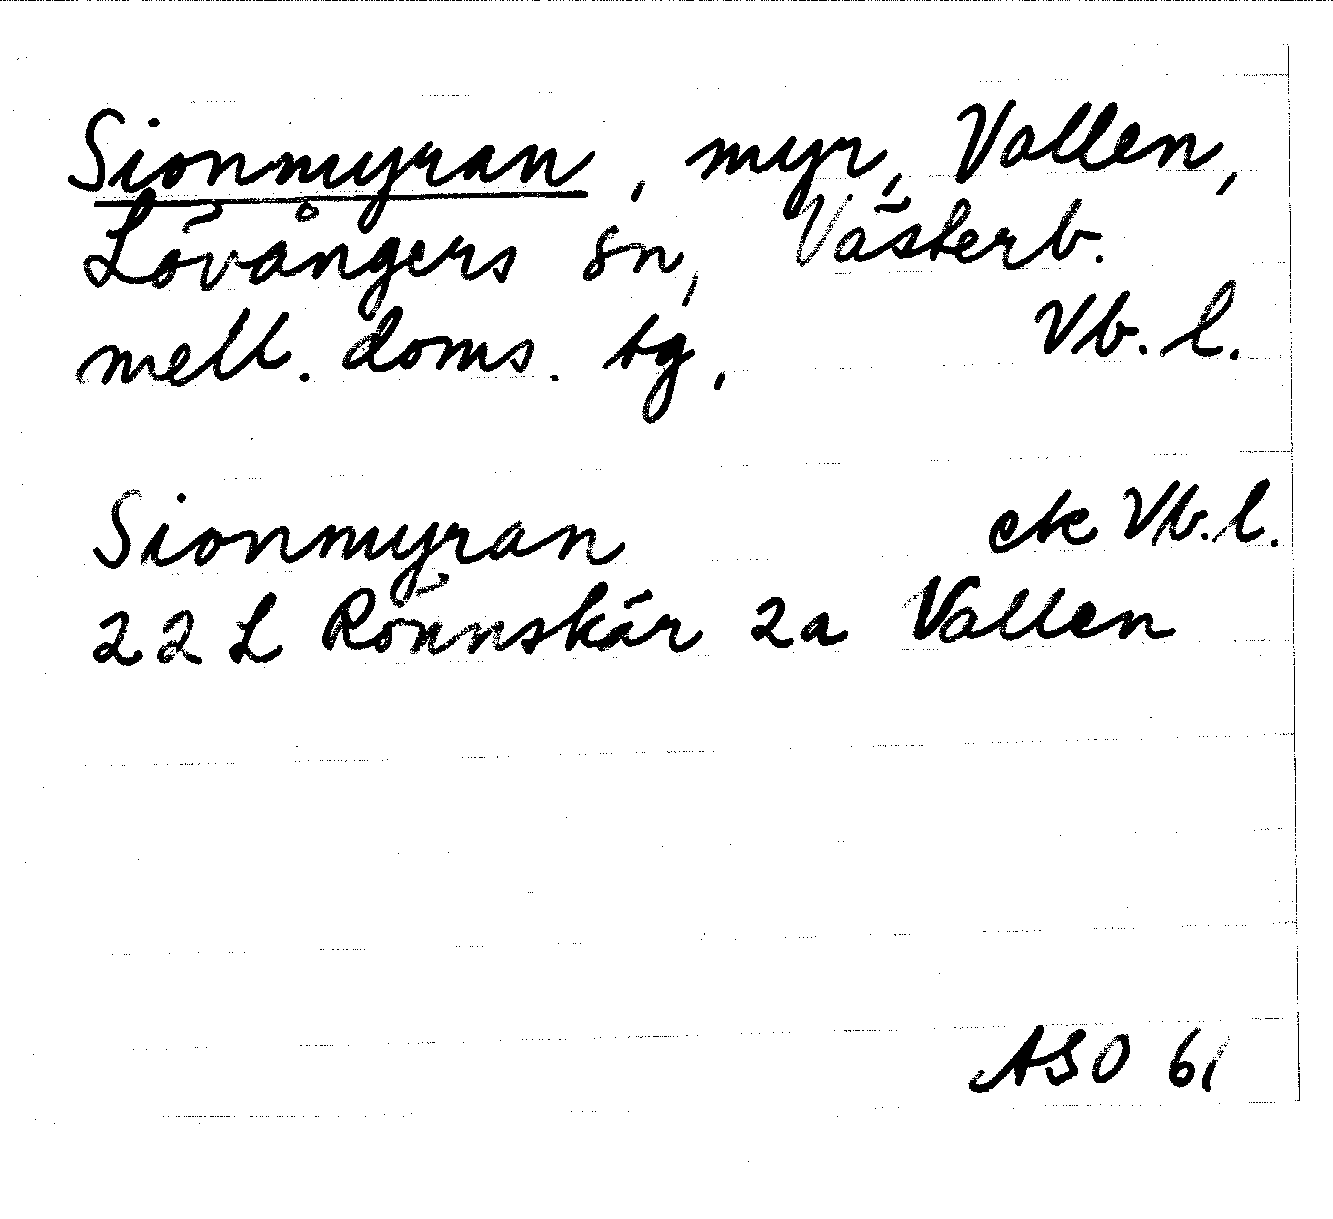 Sionmyran, myr, Vallen,
Lövångers sn, Västerb.
mell. doms. tg, Vb. l.
Sionmyran ek Vb. l.
22 L Rönnskär 2a Vallen
ASO 61